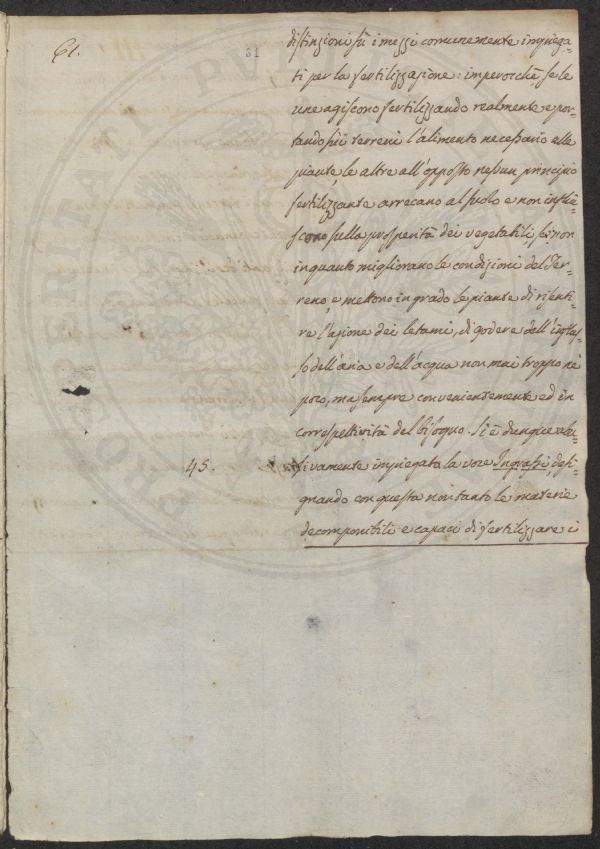 61.
31
distinzioni sù i mezzi comunemente impiega-
ti per la fertilizzazione: imperocchè, se le
une agiscono fertilizzando realmente e por-
tando sù i terreni l'alimento necessario alle
piante, le altre all'opposto nessun principio
fertilizzante arrecano al suolo e non influi-
scono sulla prosperità dei vegetabili, se non
in quanto migliorano le condizioni del Ter-
reno, e mettono in grado le piante di risenti-
re l'azione dei letami, di godere dell'influs-
so dell'aria e dell'acqua non mai troppo nè
poco, ma sempre convenientemente ed in
correspettività del bisogno. Si è dunque
45.
sivamente impiegata la voce Ingrassi, desi-
gnando con questa non tanto le materie
decomponibili e capaci di fertilizzare i
PROSPERITATI PVBLICAE